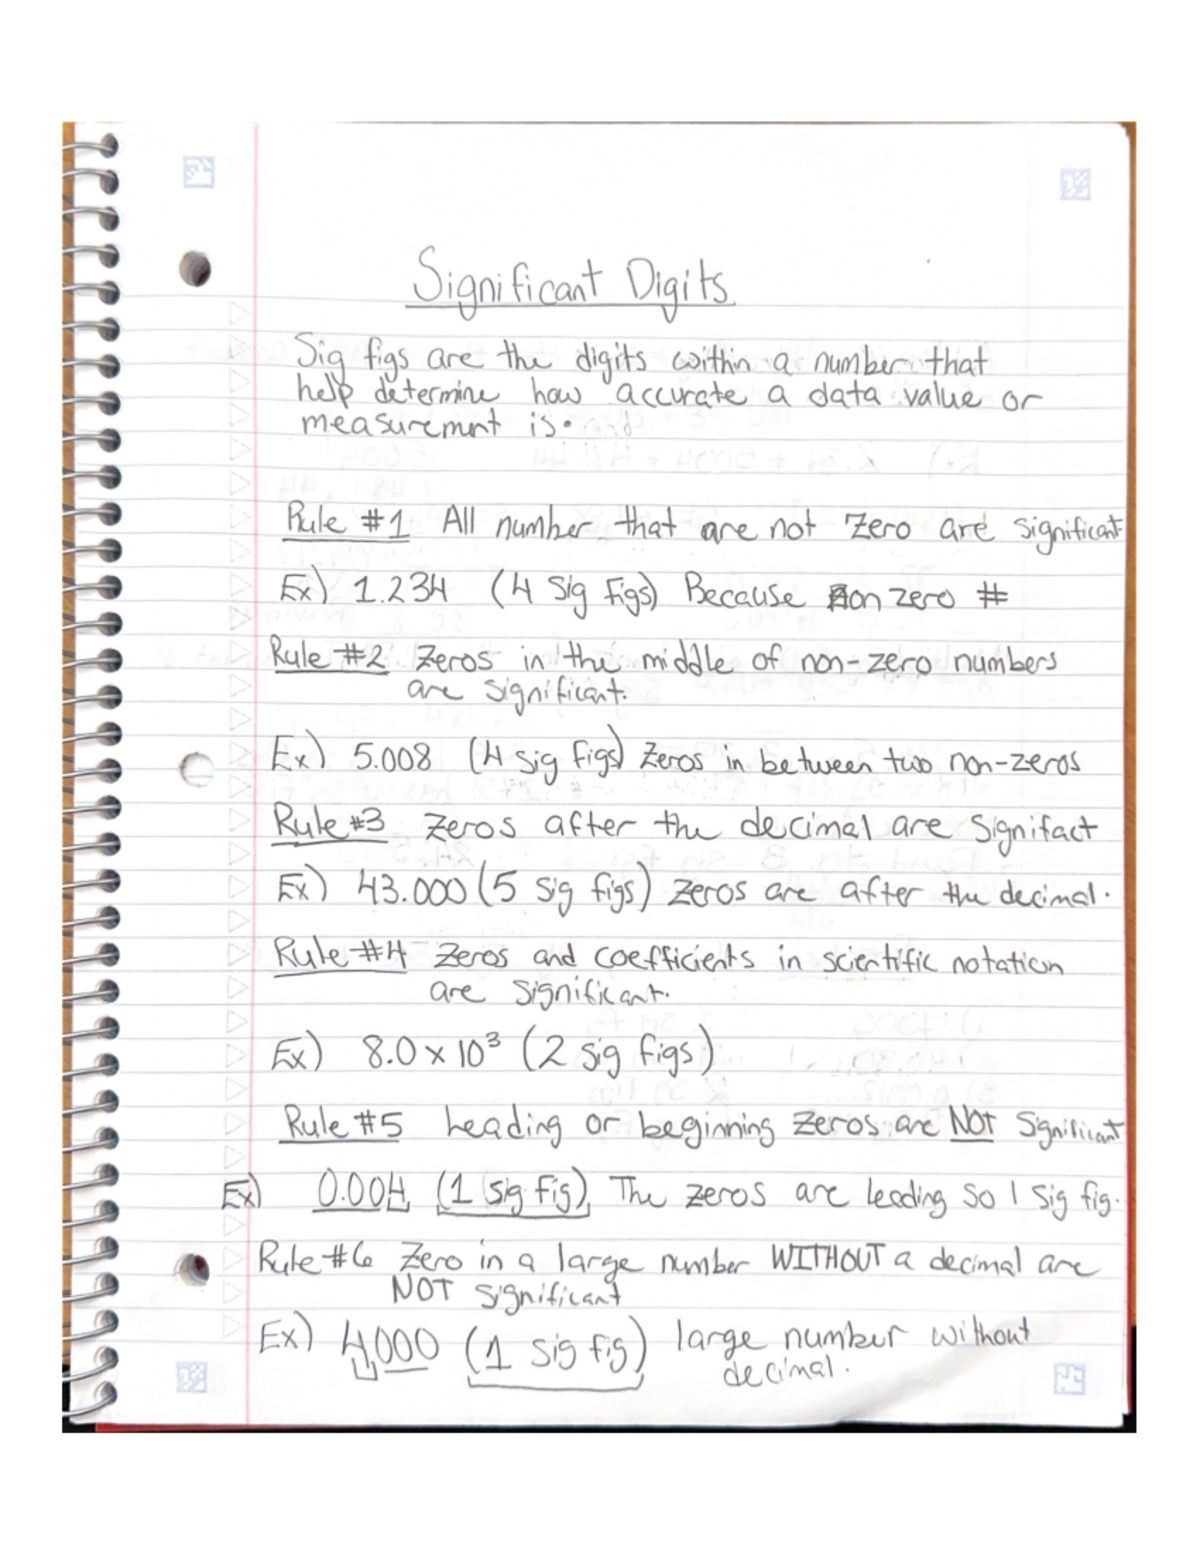 Significant Digits
Sig figs are the digits within a number that
help determine how accurate a data value or
measurement is.
Rule #1 All number that are not Zero are significant
Ex) 1.234 (4 Sig Figs) Because non zero #
Rule #2 Zeros in the middle of non-zero numbers
are significant.
Ex) 5.008 (4 sig figs) Zeros in between two non-zeros
Rule #3 Zeros after the decimal are Signifact
Ex) 43.000 (5 sig figs) Zeros are after the decimal.
Rule #4 Zeros and coefficients in scientific notation
are significant.
Ex) 8.0 x 10³ (2 sig figs)
Rule #5 Leading or beginning Zeros are NOT Significant
Ex) 0.004 (1 sig fig) The zeros are leading so 1 sig fig.
Rule #6 Zero in a large number WITHOUT a decimal are
NOT significant
Ex) 4000 (1 sig fig) large number without
decimal.